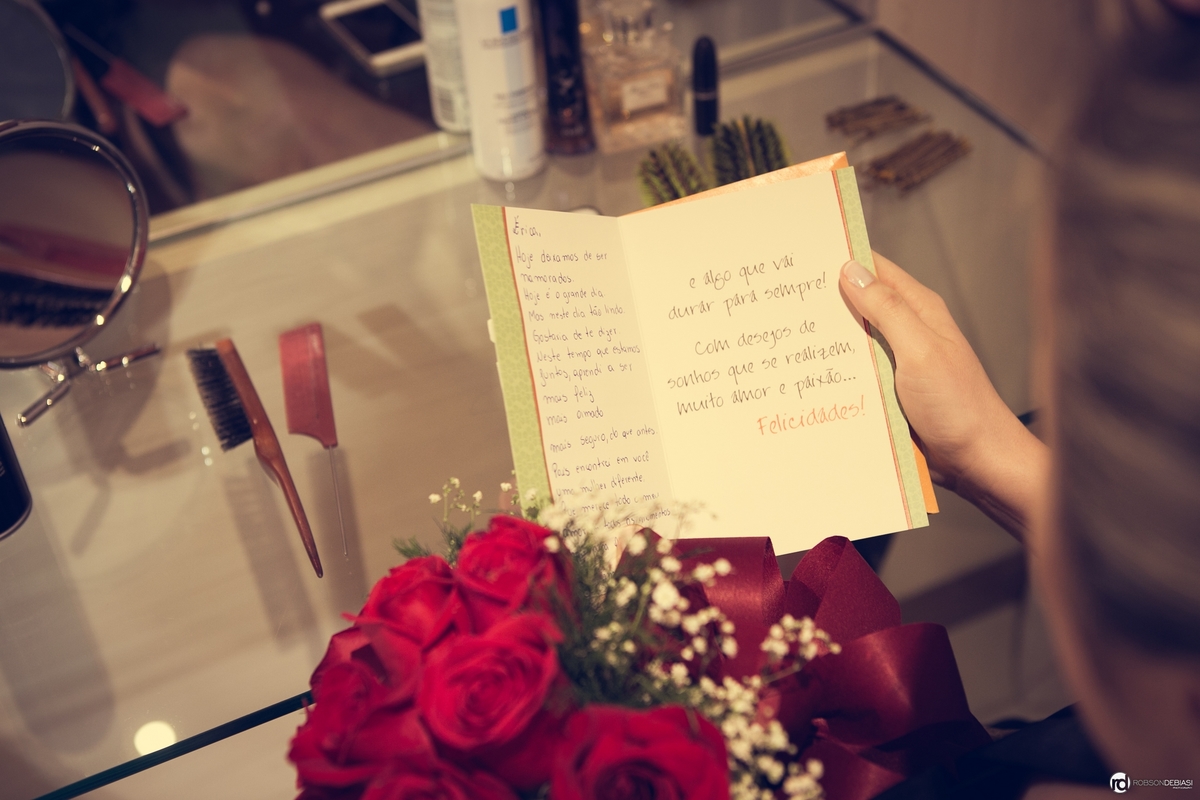 Érica,
Hoje deixamos de ser
namorados.
Hoje é o grande dia.
Mas neste dia tão lindo.
Gostaria de te dizer.
Neste tempo que estamos
juntos, aprendi a ser
mais feliz
mais amado
mais seguro, do que antes.
Pois encontra em você
uma mulher diferente.
merece todo o meu
e algo que vai
durar para sempre!
Com desejos de
sonhos que se realizem,
muito amor e paixão...
Felicidades!
rd ROBSONDEBIASI